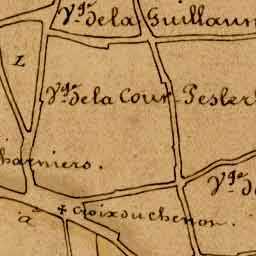 V.gé de la Guillaum
L
V.gé de la Cour Pesler
harniers.
V.gé d
à
+ Croix du chenon.